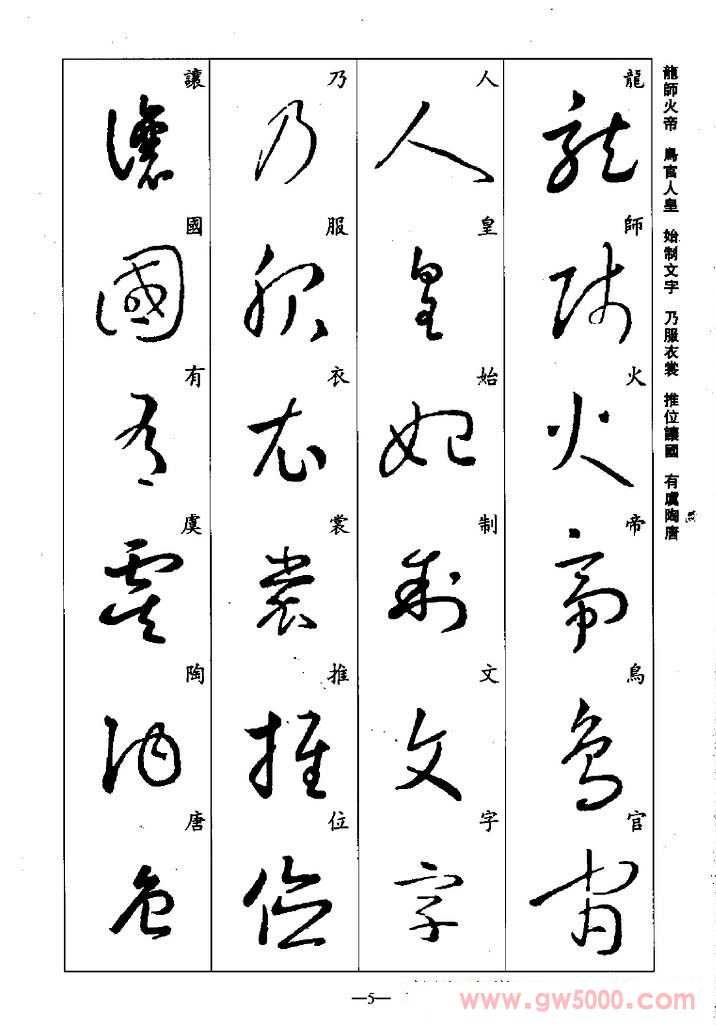 龍師火帝 鳥官人皇 始制文字 乃服衣裳 推位讓國 有虞陶唐
龍師火帝鳥官
人皇始制文字
乃服衣裳推位
讓國有虞陶唐
—5—
www.gw5000.com